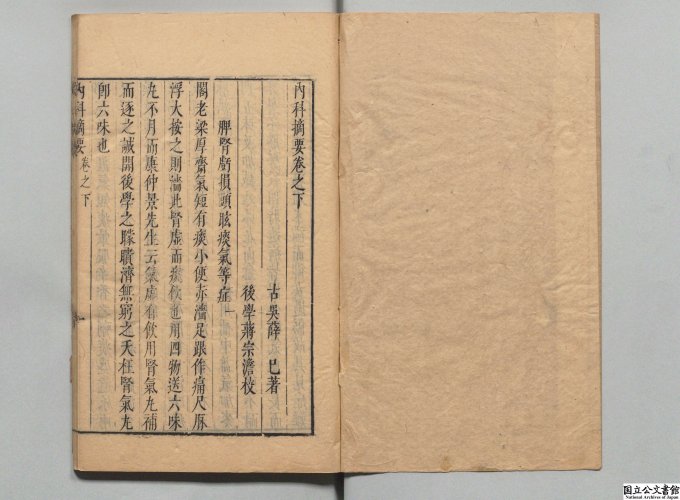 內科摘要卷之下
古吳薛 己著
後學蔣宗澹校
脾腎虧損頭眩痰氣等症一
閣老梁厚齋氣短有痰小便赤澀足跟作痛尺脉
浮大按之則濇此腎虛而痰飲也用四物送六味
丸不月而康仲景先生云氣虛有飲用腎氣丸補
而逐之誠開後學之矇瞶濟無窮之夭枉腎氣丸
卽六味也
內科摘要卷之下
一
国立公文書館
National Archives of Japan